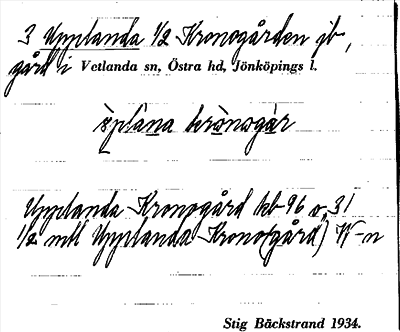 3 Upplanda 1/2 Kronogården jb,
gård i Vetlanda sn, Östra hd, Jönköpings l.
òplána kerànsgàr
Upplanda Kronogård kb 96 o. 31
1/2 mtl Upplanda Krono(gård) W-n
Stig Bäckstrand 1934.